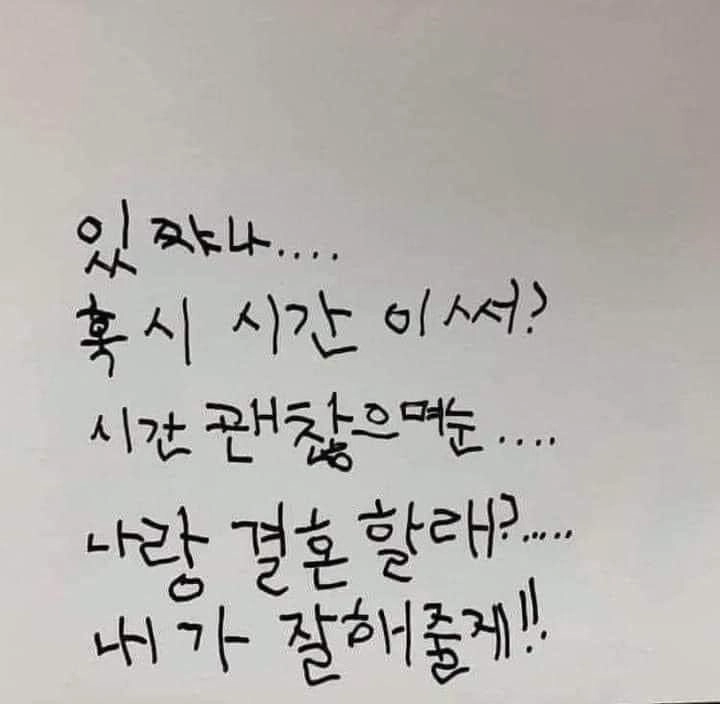 있쟈나....
혹시 시간 이써?
시간 괜찮으며눈....
나랑 결혼 할래?.....
내가 잘해줄게!!